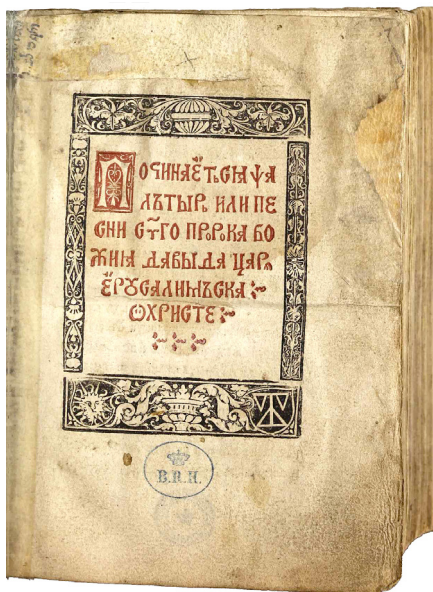 ПОЧИНАЕ҃ТЬСѦ ѰА
ЛЪТЫРЬ ИЛИ ПЕ
СНИ СТ҃ГО ПР҃РКА БО
ЖИꙖ ДАВЫДА ЦАРѦ
Е҃РУСАЛИМЪСКА
ѠХРИСТЕ
B.R.H.